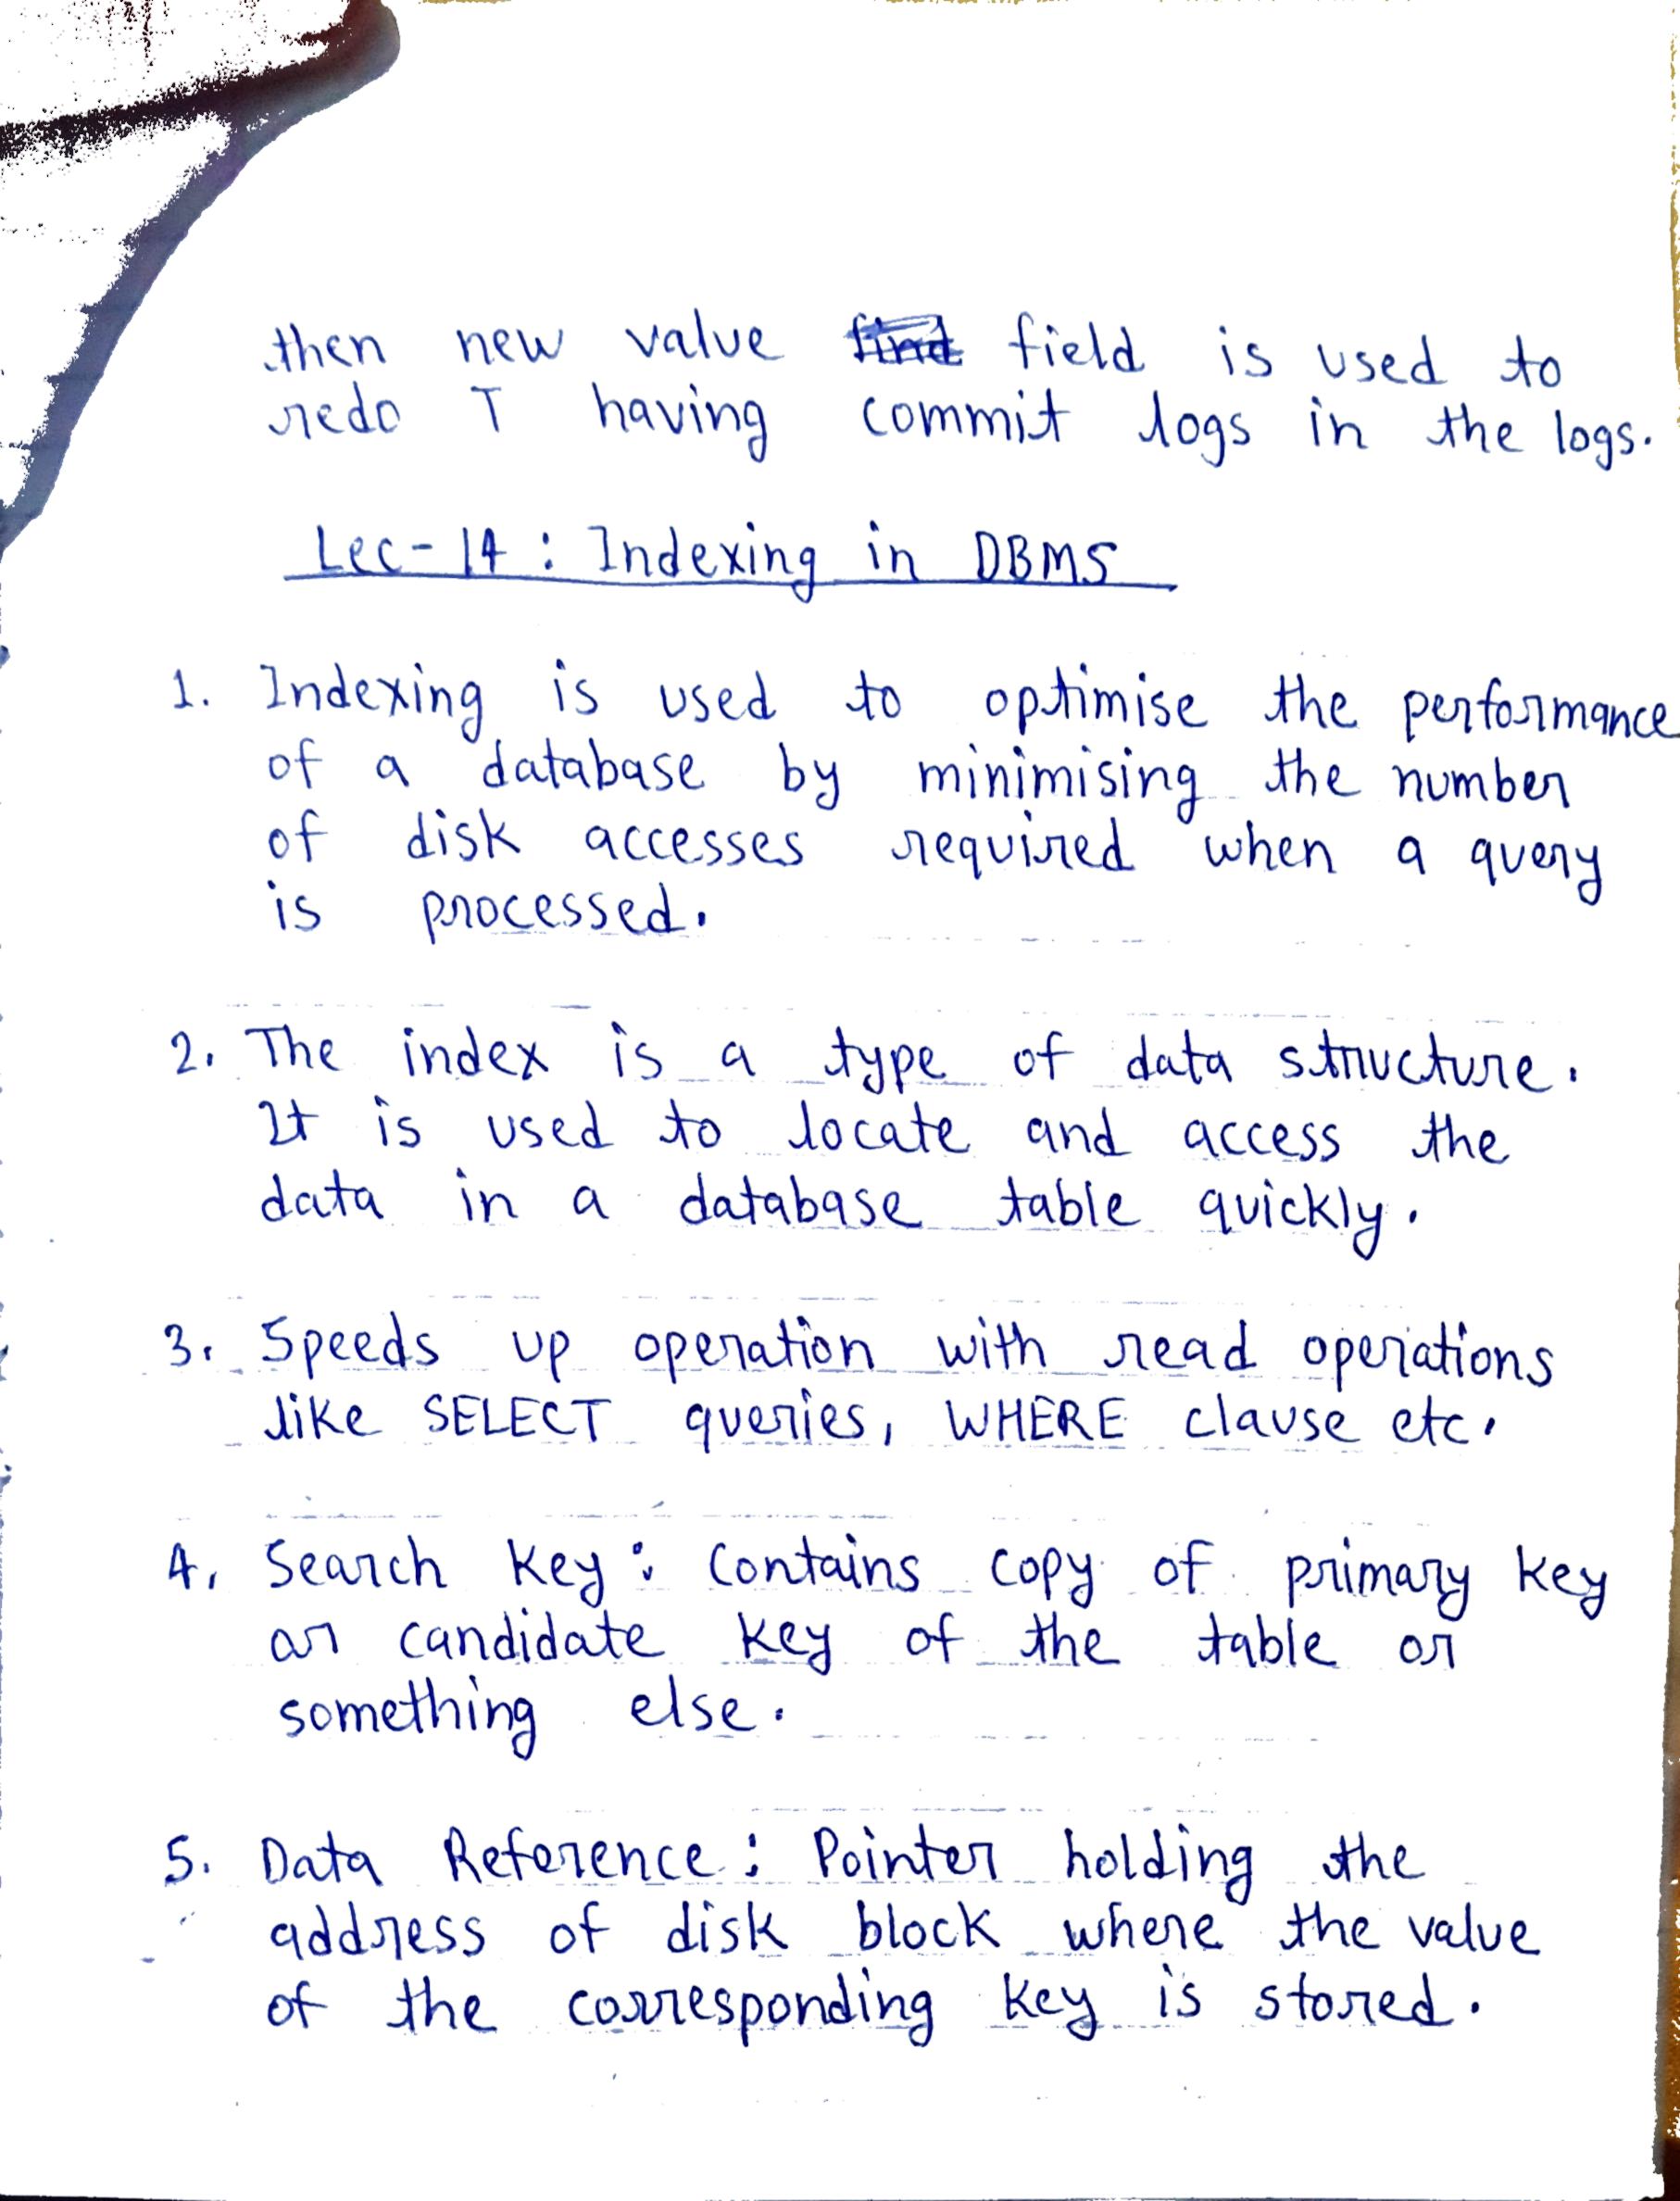 then new value find field is used to
redo T having commit logs in the logs.
Lec-14 : Indexing in DBMS
1. Indexing is used to optimise the performance
of a database by minimising the number
of disk accesses required when a query
is processed.
2. The index is a type of data structure.
It is used to locate and access the
data in a database table quickly.
3. Speeds up operation with read operations
like SELECT queries, WHERE clause etc.
4. Search Key : Contains copy of primary key
or candidate key of the table or
something else.
5. Data Reference : Pointer holding the
address of disk block where the value
of the corresponding key is stored.